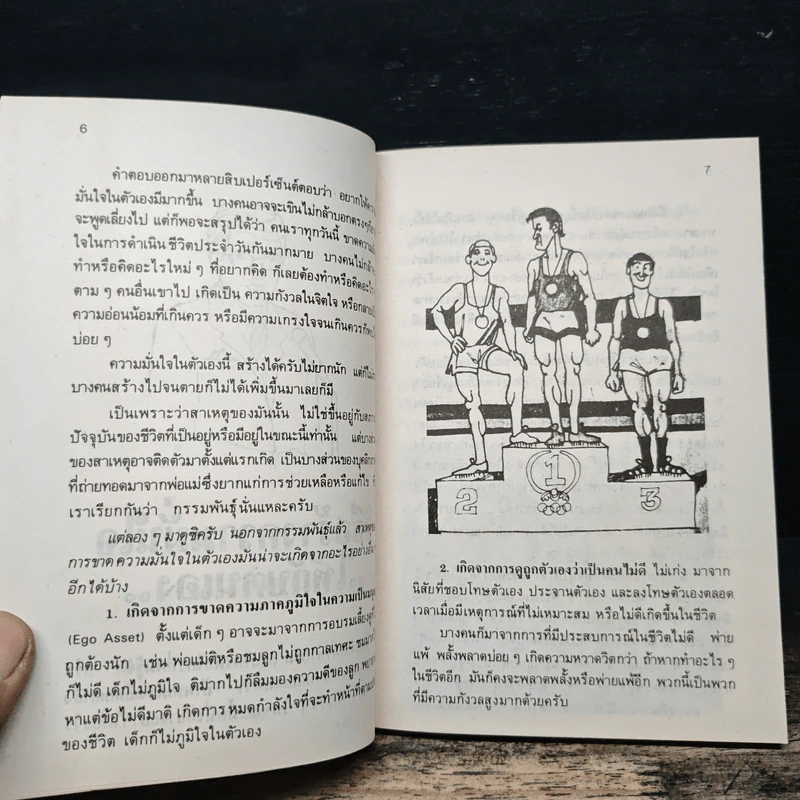 6
คำตอบออกมาหลายสิบเปอร์เซ็นต์ตอบว่า อยากให้
มั่นใจในตัวเองมีมากขึ้น บางคนอาจจะเขินไม่กล้าบอกตรงๆ
จะพูดเลี่ยงไป แต่ก็พอจะสรุปได้ว่า คนเราทุกวันนี้ ขาดความ
ใจในการดำเนินชีวิตประจำวันกันมากมาย บางคนไม่กล้า
ทำหรือคิดอะไรใหม่ ๆ ที่อยากคิด ก็เลยต้องทำหรือคิดอะไร
ตาม ๆ คนอื่นเขาไป เกิดเป็น ความกังวลในจิตใจ หรือกลาย
ความอ่อนน้อมที่เกินควร หรือมีความเกรงใจจนเกินควรก็
บ่อย ๆ
ความมั่นใจในตัวเองนี้ สร้างได้ครับไม่ยากนัก แต่ก็ไม่
บางคนสร้างไปจนตายก็ไม่ได้เพิ่มขึ้นมาเลยก็มี
เป็นเพราะว่าสาเหตุของมันนั้น ไม่ใช่ขึ้นอยู่กับ
ปัจจุบันของชีวิตที่เป็นอยู่หรือมีอยู่ในขณะนี้เท่านั้น แต่บาง
ของสาเหตุอาจติดตัวมาตั้งแต่แรกเกิด เป็นบางส่วนของบุคลิก
ที่ถ่ายทอดมาจากพ่อแม่ซึ่งยากแก่การช่วยเหลือหรือแก้ไข
เราเรียกกันว่า กรรมพันธุ์นั่นแหละครับ
แต่ลอง ๆ มาดูซิครับ นอกจากกรรมพันธุ์แล้ว
การขาดความมั่นใจในตัวเองมันน่าจะเกิดจากอะไรอย่างอื่น
อีกได้บ้าง
1. เกิดจากการขาดความภาคภูมิใจในความเป็น
(Ego Asset) ตั้งแต่เด็ก ๆ อาจจะมาจากการอบรมเลี้ยงดูที่
ถูกต้องนัก เช่น พ่อแม่ติหรือชมลูกไม่ถูกกาลเทศะ ชมมาก
ก็ไม่ดี เด็กไม่ภูมิใจ ติมากไปก็ลืมมองความดีของลูก
หาแต่ข้อไม่ดีมาติ เกิดการหมดกำลังใจที่จะทำหน้าที่ตาม
ของชีวิต เด็กก็ไม่ภูมิใจในตัวเอง
7
2
1
3
2. เกิดจากการดูถูกตัวเองว่าเป็นคนไม่ดี ไม่เก่ง มาจาก
นิสัยที่ชอบโทษตัวเอง ประจานตัวเอง และลงโทษตัวเองตลอด
เวลาเมื่อมีเหตุการณ์ที่ไม่เหมาะสม หรือไม่ดีเกิดขึ้นในชีวิต
บางคนก็มาจากการที่มีประสบการณ์ในชีวิตไม่ดี พ่าย
แพ้ พลั้งพลาดบ่อย ๆ เกิดความหวาดวิตกว่า ถ้าหากทำอะไร ๆ
ในชีวิตอีก มันก็คงจะพลาดพลั้งหรือพ่ายแพ้อีก พวกนี้เป็นพวก
ที่มีความกังวลสูงมากด้วยครับ